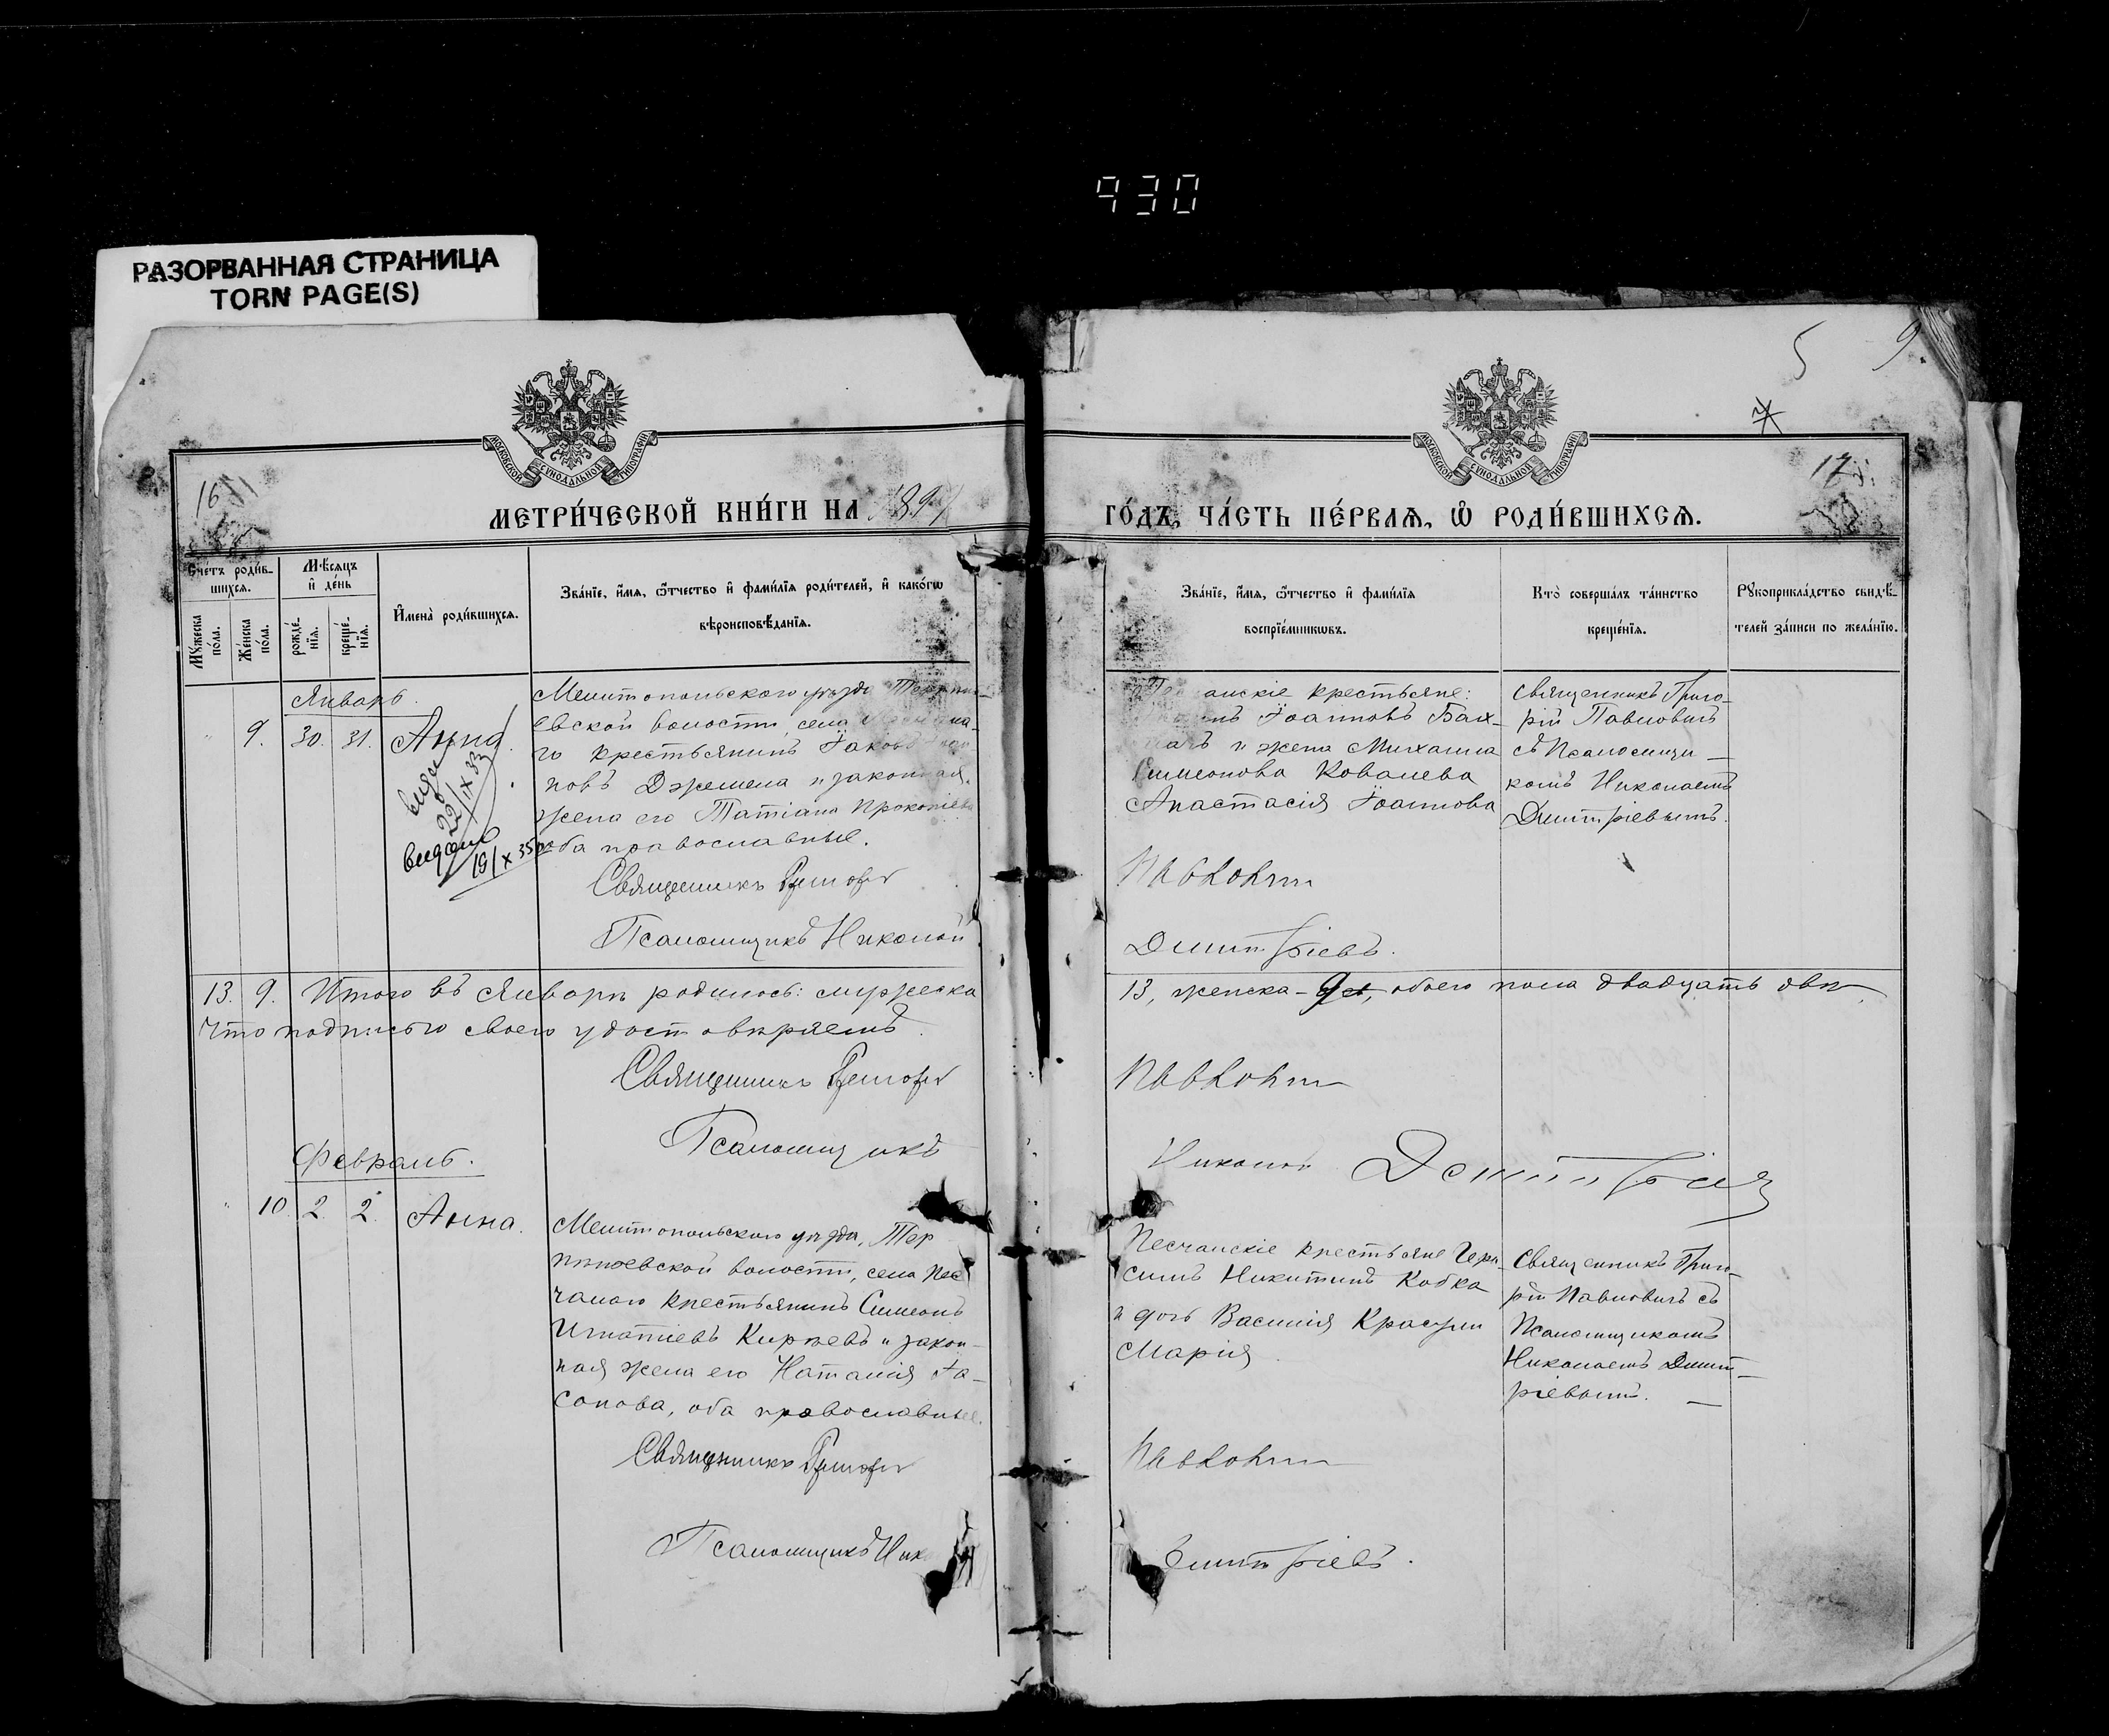 930
РАЗОРВАННАЯ СТРАНИЦА
TORN PAGE(S)
5 9.
7
МОСКОВСКОЙ СУНОДАЛЬНОЙ ТИПОГРАФІИ
МОСКОВСКОЙ СУНОДАЛЬНОЙ ТИПОГРАФІИ
16
17
МЕТРИ́ЧЕСКОЙ КНИ́ГИ НА 1897
ГО́ДЪ, ЧА́СТЬ ПЕ́РВАѦ, Ѡ РОДИ́ВШИХСѦ.
Сче́тъ роди́в-
шихсѧ.
Му́жеска по́ла.
Же́нска по́ла.
Мѣ́сѧцъ
и҆ де́нь
рожде́-
нїѧ.
креще́-
нїѧ.
И҆мена̀ роди́вшихсѧ.
Зва́нїе, и҆́мѧ, ѻ҆́тчество и҆ фами́лїѧ роди́телей, и҆ како́гѡ
вѣроисповѣ́данїѧ.
Зва́нїе, и҆́мѧ, ѻ҆́тчество и҆ фами́лїѧ
воспрїе́мникѡвъ.
Кто̀ соверша́лъ та́инство
креще́нїѧ.
Рꙋкоприкла́дство свидѣ́-
телей за́писи по жела́нїю.
Январь.
9. 30. 31. Анна.
22/IX 33
выдано
19/X 35
Мелитопольскаго уѣзда
евской волости, села
го крестьянинъ Іаковъ
новъ Джемела и законная
жена его Татіана Прокопіева
оба православные.
Священникъ Григорій
Псаломщикъ Николай
крестьяне:
Іоанновъ Бах-
и жена Михаила
Симеонова Ковалева
Анастасія Іоаннова
Священникъ Григо-
рій Павловичъ
съ Псаломщи-
комъ Николаемъ
Дмитріевымъ.
Павловичъ
Дмитріевъ.
13. 9. Итого въ Январѣ родилось: мужеска
13, женска - 9, обоего пола двадцать два
Что подписью своею удостовѣряемъ.
Священникъ Григорій
Павловичъ
Псаломщикъ
Николай Дмитріевъ
Февраль.
10. 2. 2. Анна.
Мелитопольскаго уѣзда, Тер
пѣніевской волости, села Пес
чанаго крестьянинъ Симеонъ
Игнатіевъ Кирѣевъ и закон-
ная жена его Наталія Іа-
сонова, оба православные.
Священникъ Григорій
Псаломщикъ Ник
Песчанскіе крестьяне Гера-
симъ Никитинъ Кобка
и дочь Василія Красули
Марія
Священникъ Григо-
рій Павловичъ съ
Псаломщикомъ
Николаемъ Дмит-
ріевымъ. —
Павловичъ
Дмитріевъ.